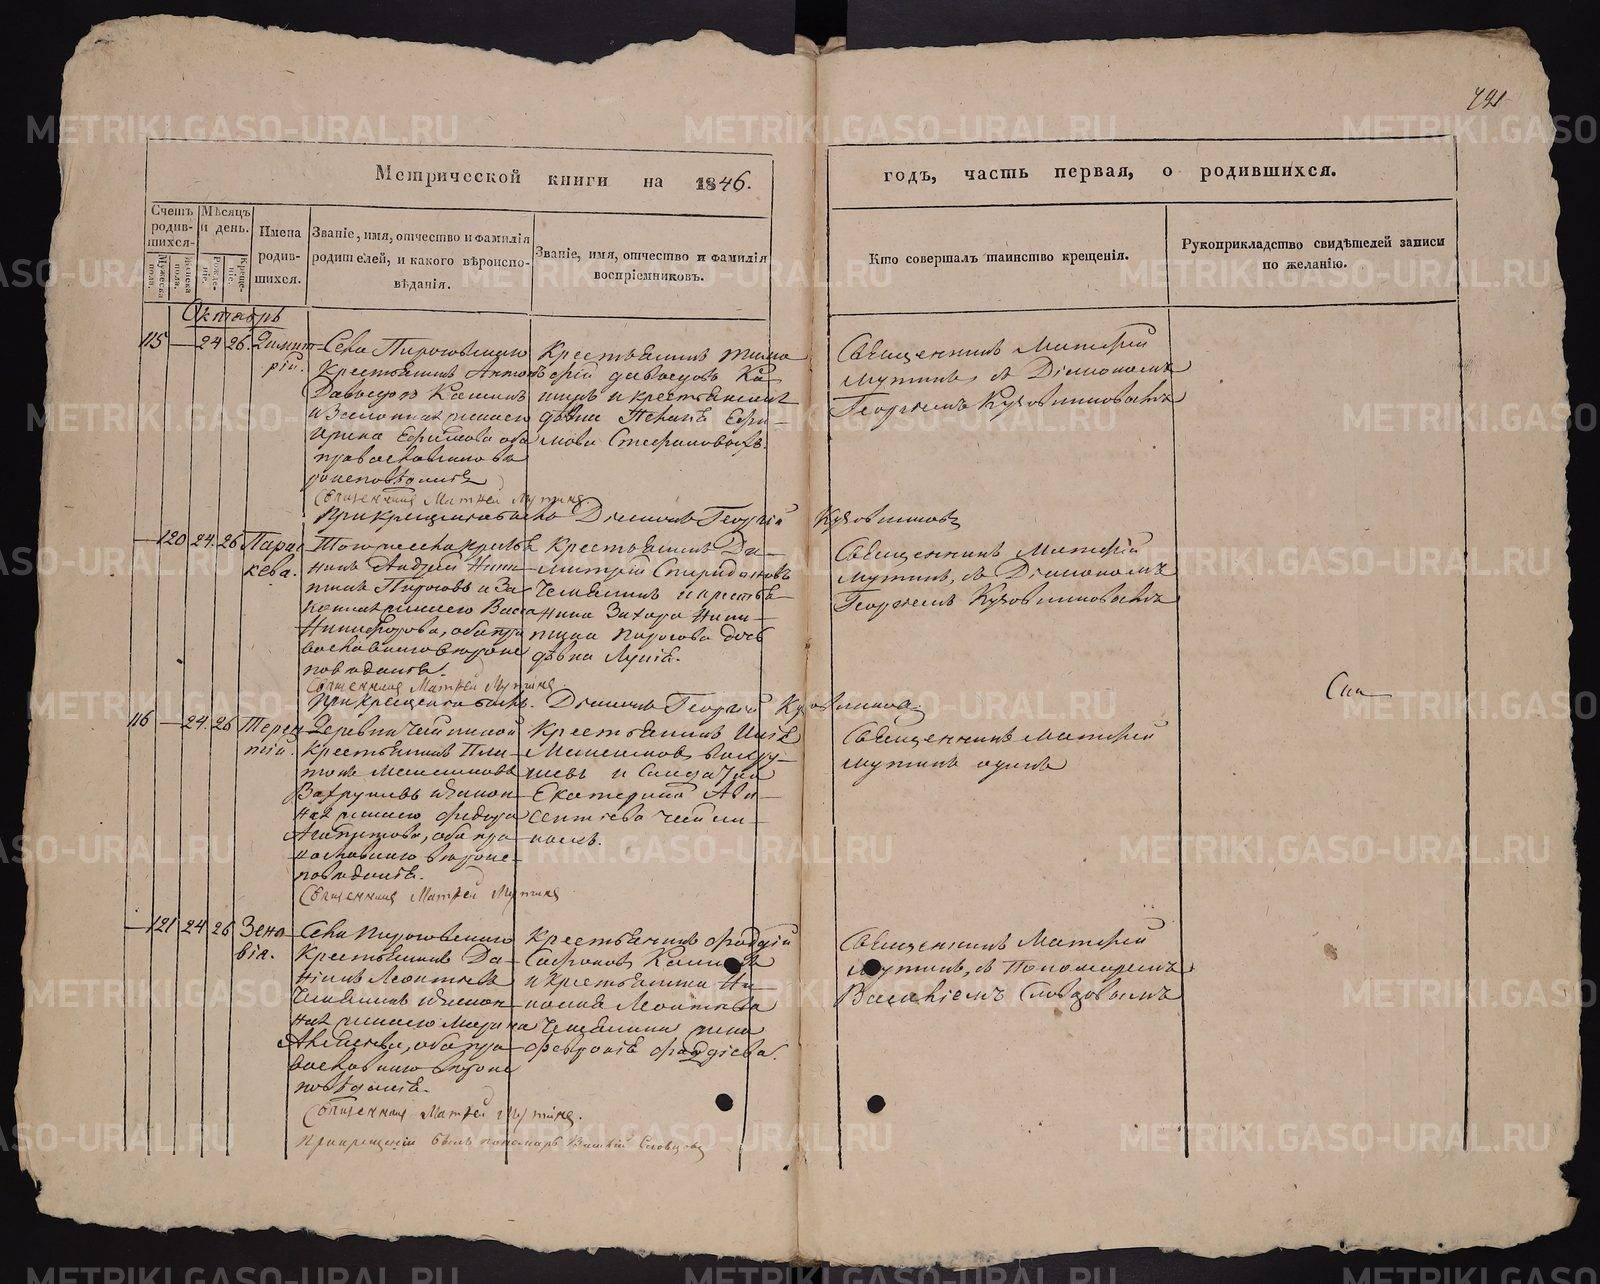 721
Метрической книги на 1846.
годъ, часть первая, о родившихся.
Счетъ родив-шихся.
Мѣсяцъ и день.
Имена родив-шихся.
Званіе, имя, отчество и фамилія родителей, и какого вѣроиспо-вѣданія.
Званіе, имя, отчество и фамилія воспріемниковъ.
Кто совершалъ таинство крещенія.
Рукоприкладство свидѣтелей записи по желанію.
Мужеска пола.
Женска пола.
Рожде-ніе.
Креще-ніе.
Октябрь
115 — 24 26. Димит-рій.
Села Пироговскаго
Крестьянинъ Антонъ
Давыдовъ Кашинъ
и законная жена его
Ирина Ефимова оба
православнаго вѣ
роисповѣданія
Священникъ Матѳей Мутинъ
При крещеніи былъ Діаконъ Георгій Кузовниковъ
Крестьянинъ Тимо
ѳей Давыдовъ Ка
шинъ и крестьянская
дѣвка
Священникъ Матѳей
Мутинъ, съ Діакономъ
Георгіемъ Кузовниковымъ
— 120 24. 26 Парас-кева.
Того же села крестья
нинъ Андрей Ники
тинъ Пироговъ и за
конная жена его Васса
Никифорова, оба пра
вославнаго вѣроис
повѣданія.
Священникъ Матѳей Мутинъ.
При крещеніи былъ Діаконъ Георгій Кузовниковъ.
Крестьянинъ Ди-
митрій Спиридоновъ
Чемезинъ и крестья-
нина Захара Ники-
тина Пирогова дочь
дѣвка
Священникъ Матѳей
Мутинъ, съ Діакономъ
Георгіемъ Кузовниковымъ
Сви
116 — 24. 26 Терен-тій.
Деревни
Крестьянинъ Пла-
тонъ Максимовъ
Вахрушевъ и закон-
ная жена его Ѳедора
оба пра-
вославнаго вѣроис-
повѣданія.
Священникъ Матѳей Мутинъ
Крестьянинъ
Максимовъ Вахру-
шевъ и
Екатерина Ави-
Священникъ Матѳей
Мутинъ одинъ
— 121 24. 26 Зено-вія.
Села Пироговскаго
Крестьянинъ Да-
ніилъ Леонтьевъ
и закон-
ная жена его Марина
Алексѣева, оба пра-
вославнаго вѣроис
повѣданія.
Священникъ Матѳей Мутинъ.
При крещеніи былъ пономарь Василій Словцовъ
Крестьянинъ
Сафроновъ Кашинъ
и крестьянина
Леонтьева
жена
Февронія
Священникъ Матѳей
Мутинъ, съ Пономаремъ
Василіемъ Словцовымъ
METRIKI.GASO-URAL.RU